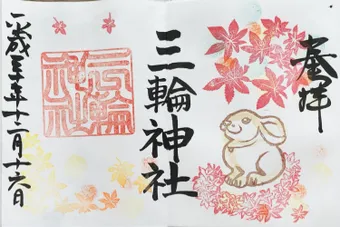 奉拝
三輪神社
三輪神社
平成三十年十二月十六日